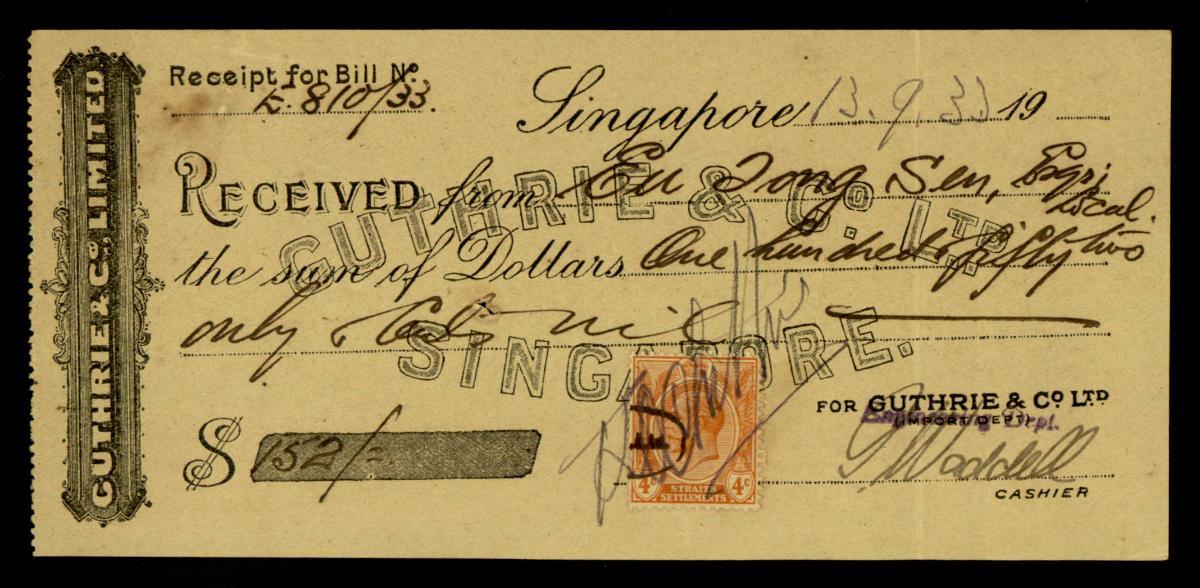 GUTHRIE & Co. LIMITED
Receipt for Bill No.
E. 810/33.
Singapore 13.9.33 19
RECEIVED from Eu Tong Sen, Esqr;
Local.
the sum of Dollars One hundred & fifty two
only & Cts. nil
GUTHRIE & Co. LTD.
SINGAPORE.
$ 152/-
STRAITS
SETTLEMENTS
4c 4c
FOR GUTHRIE & Co LTD
(IMPORT DEPT)
Engineering Dept.
Waddell
CASHIER